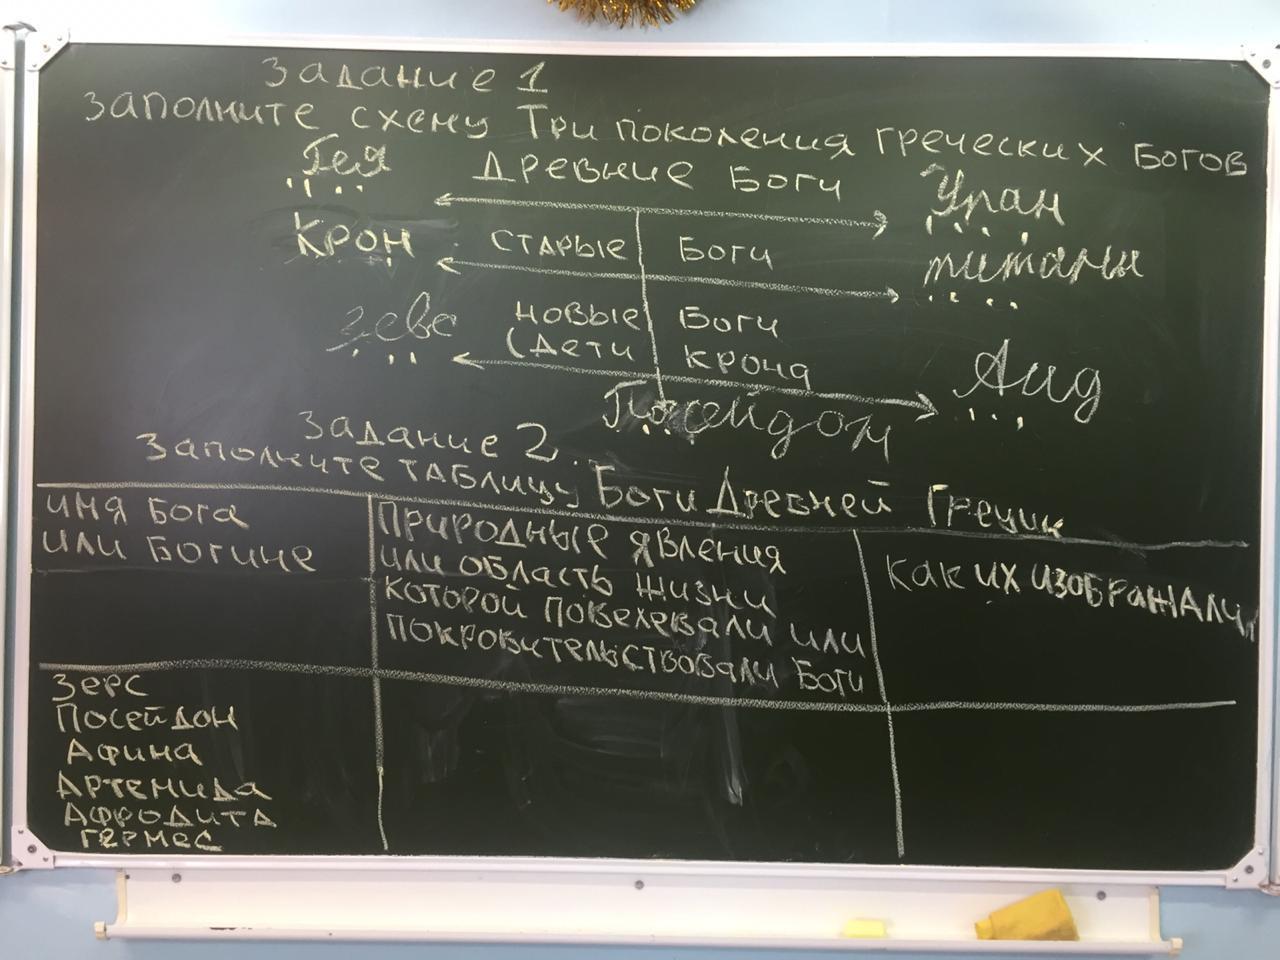 Задание 1
Заполните схему Три поколения греческих Богов
Гея Древние Боги Уран
Крон старые Боги титаны
Зевс новые Боги
(дети крона Аид
Посейдон
Задание 2
Заполните таблицу Боги Древней Греции
имя Бога
или Богине
Природные явления
или область жизни
которой повелевали или
покровительствовали Боги
Как их изображали
Зерс
Посейдон
Афина
Артемида
Афродита
Гермес